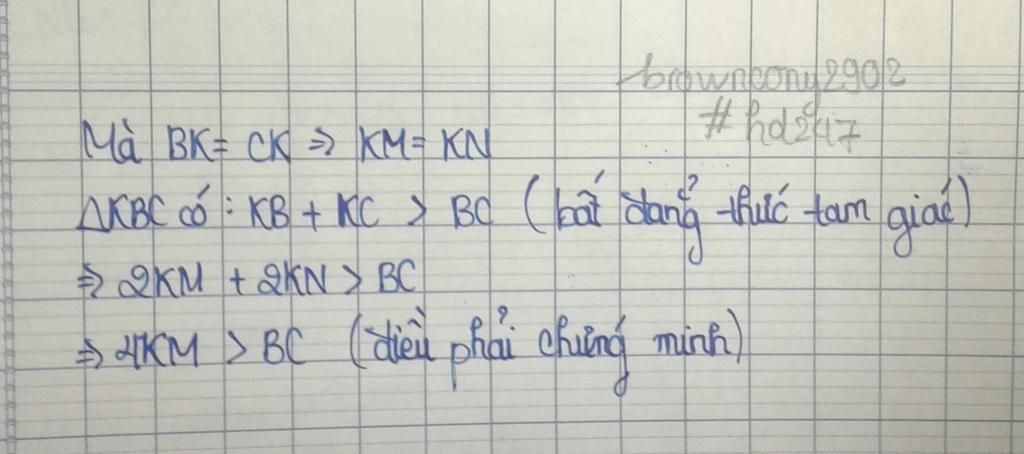 browncony2902
#hd247
Mà BK = CK ⇒ KM = KN
ΔKBC có : KB + KC > BC (bất đẳng thức tam giác)
⇒ 2KM + 2KN > BC
⇒ 4KM > BC (điều phải chứng minh)